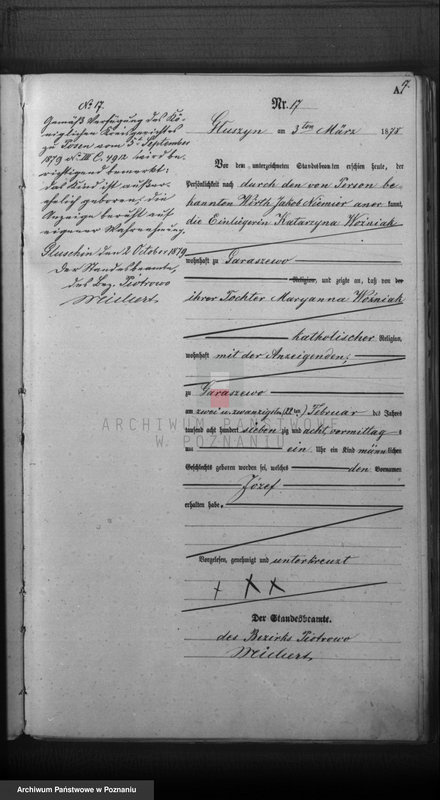 No 17.
Gemäß Verfügung des Kö-
niglichen Kreisgerichtes
zu Posen vom 5t September
1879 No III C. 4912 wird be-
richtigend bemerkt:
das Kind ist außer-
ehelich geboren, die
Anzeige beruht auf
eigener Wahrnehmung.
Gluschin den 2 October 1879
Der Standesbeamte,
des Bez. Piotrowo
Weichert.
A.
17.
Nr. 17
Gluszyn am 3ten März 1878
Vor dem unterzeichneten Standesbeamten erschien heute, der
Persönlichkeit nach durch den von Person be-
kannten Wirth Jakob Niemier aner kannt,
die Einliegerin Katarzyna Woźniak
wohnhaft zu Daraszewo
Religion, und zeigte an, daß von der
ihrer Tochter Maryanna Woźniak
katholischer Religion,
wohnhaft mit der Anzeigenden;
zu Daraszewo
am zwei u. zwanzigsten (22ten) Februar des Jahres
tausend acht hundert sieben zig und acht, vormittag s
um ein Uhr ein Kind männlichen
Geschlechts geboren worden sei, welches den Vornamen
Józef
erhalten habe.
Vorgelesen, genehmigt und unterkreuzt
+ X X
Der Standesbeamte.
des Bezirks Piotrowo
Weichert.
ARCHIWUM PAŃSTWOWE
W POZNANIU
Archiwum Państwowe w Poznaniu